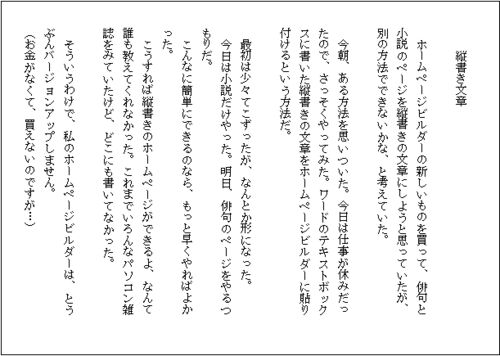 縦書き文章
ホームページビルダーの新しいものを買って、俳句と
小説のページを縦書きの文章にしようと思っていたが、
別の方法でできないかな、と考えていた。
今朝、ある方法を思いついた。今日は仕事が休みだっ
たので、さっそくやってみた。ワードのテキストボック
スに書いた縦書きの文章をホームページビルダーに貼り
付けるという方法だ。
最初は少々てこずったが、なんとか形になった。
今日は小説だけやった。明日、俳句のページをやるつ
もりだ。
こんなに簡単にできるのなら、もっと早くやればよか
った。
こうすれば縦書きのホームページができるよ、なんて
誰も教えてくれなかった。これまでいろんなパソコン雑
誌をみていたけど、どこにも書いてなかった。
そういうわけで、私のホームページビルダーは、とう
ぶんバージョンアップしません。
（お金がなくて、買えないのですが…）